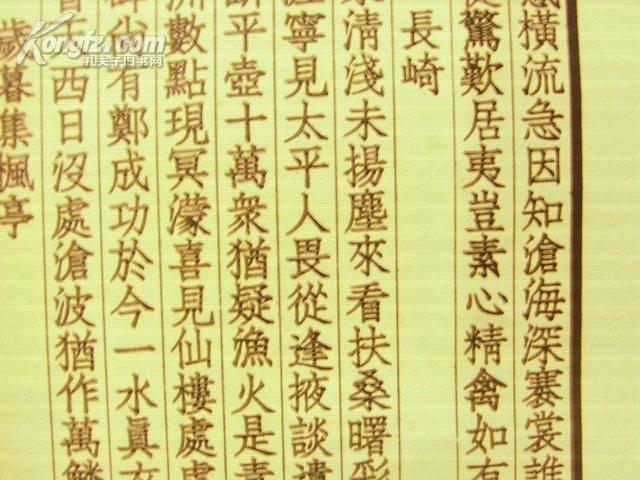 橫流急因知滄海深褰裳誰
驚歎居夷豈素心精禽如有
長崎
清淺未揚塵來看扶桑曙彩
寧見太平人畏從逢掖談遺
平壺十萬衆猶疑漁火是青
洲數點現冥濛喜見仙樓處處
尖有鄭成功於今一水眞
西日沒處滄波猶作萬鱗
歲暮集楓亭
Kongfz.com
孔夫子旧书网